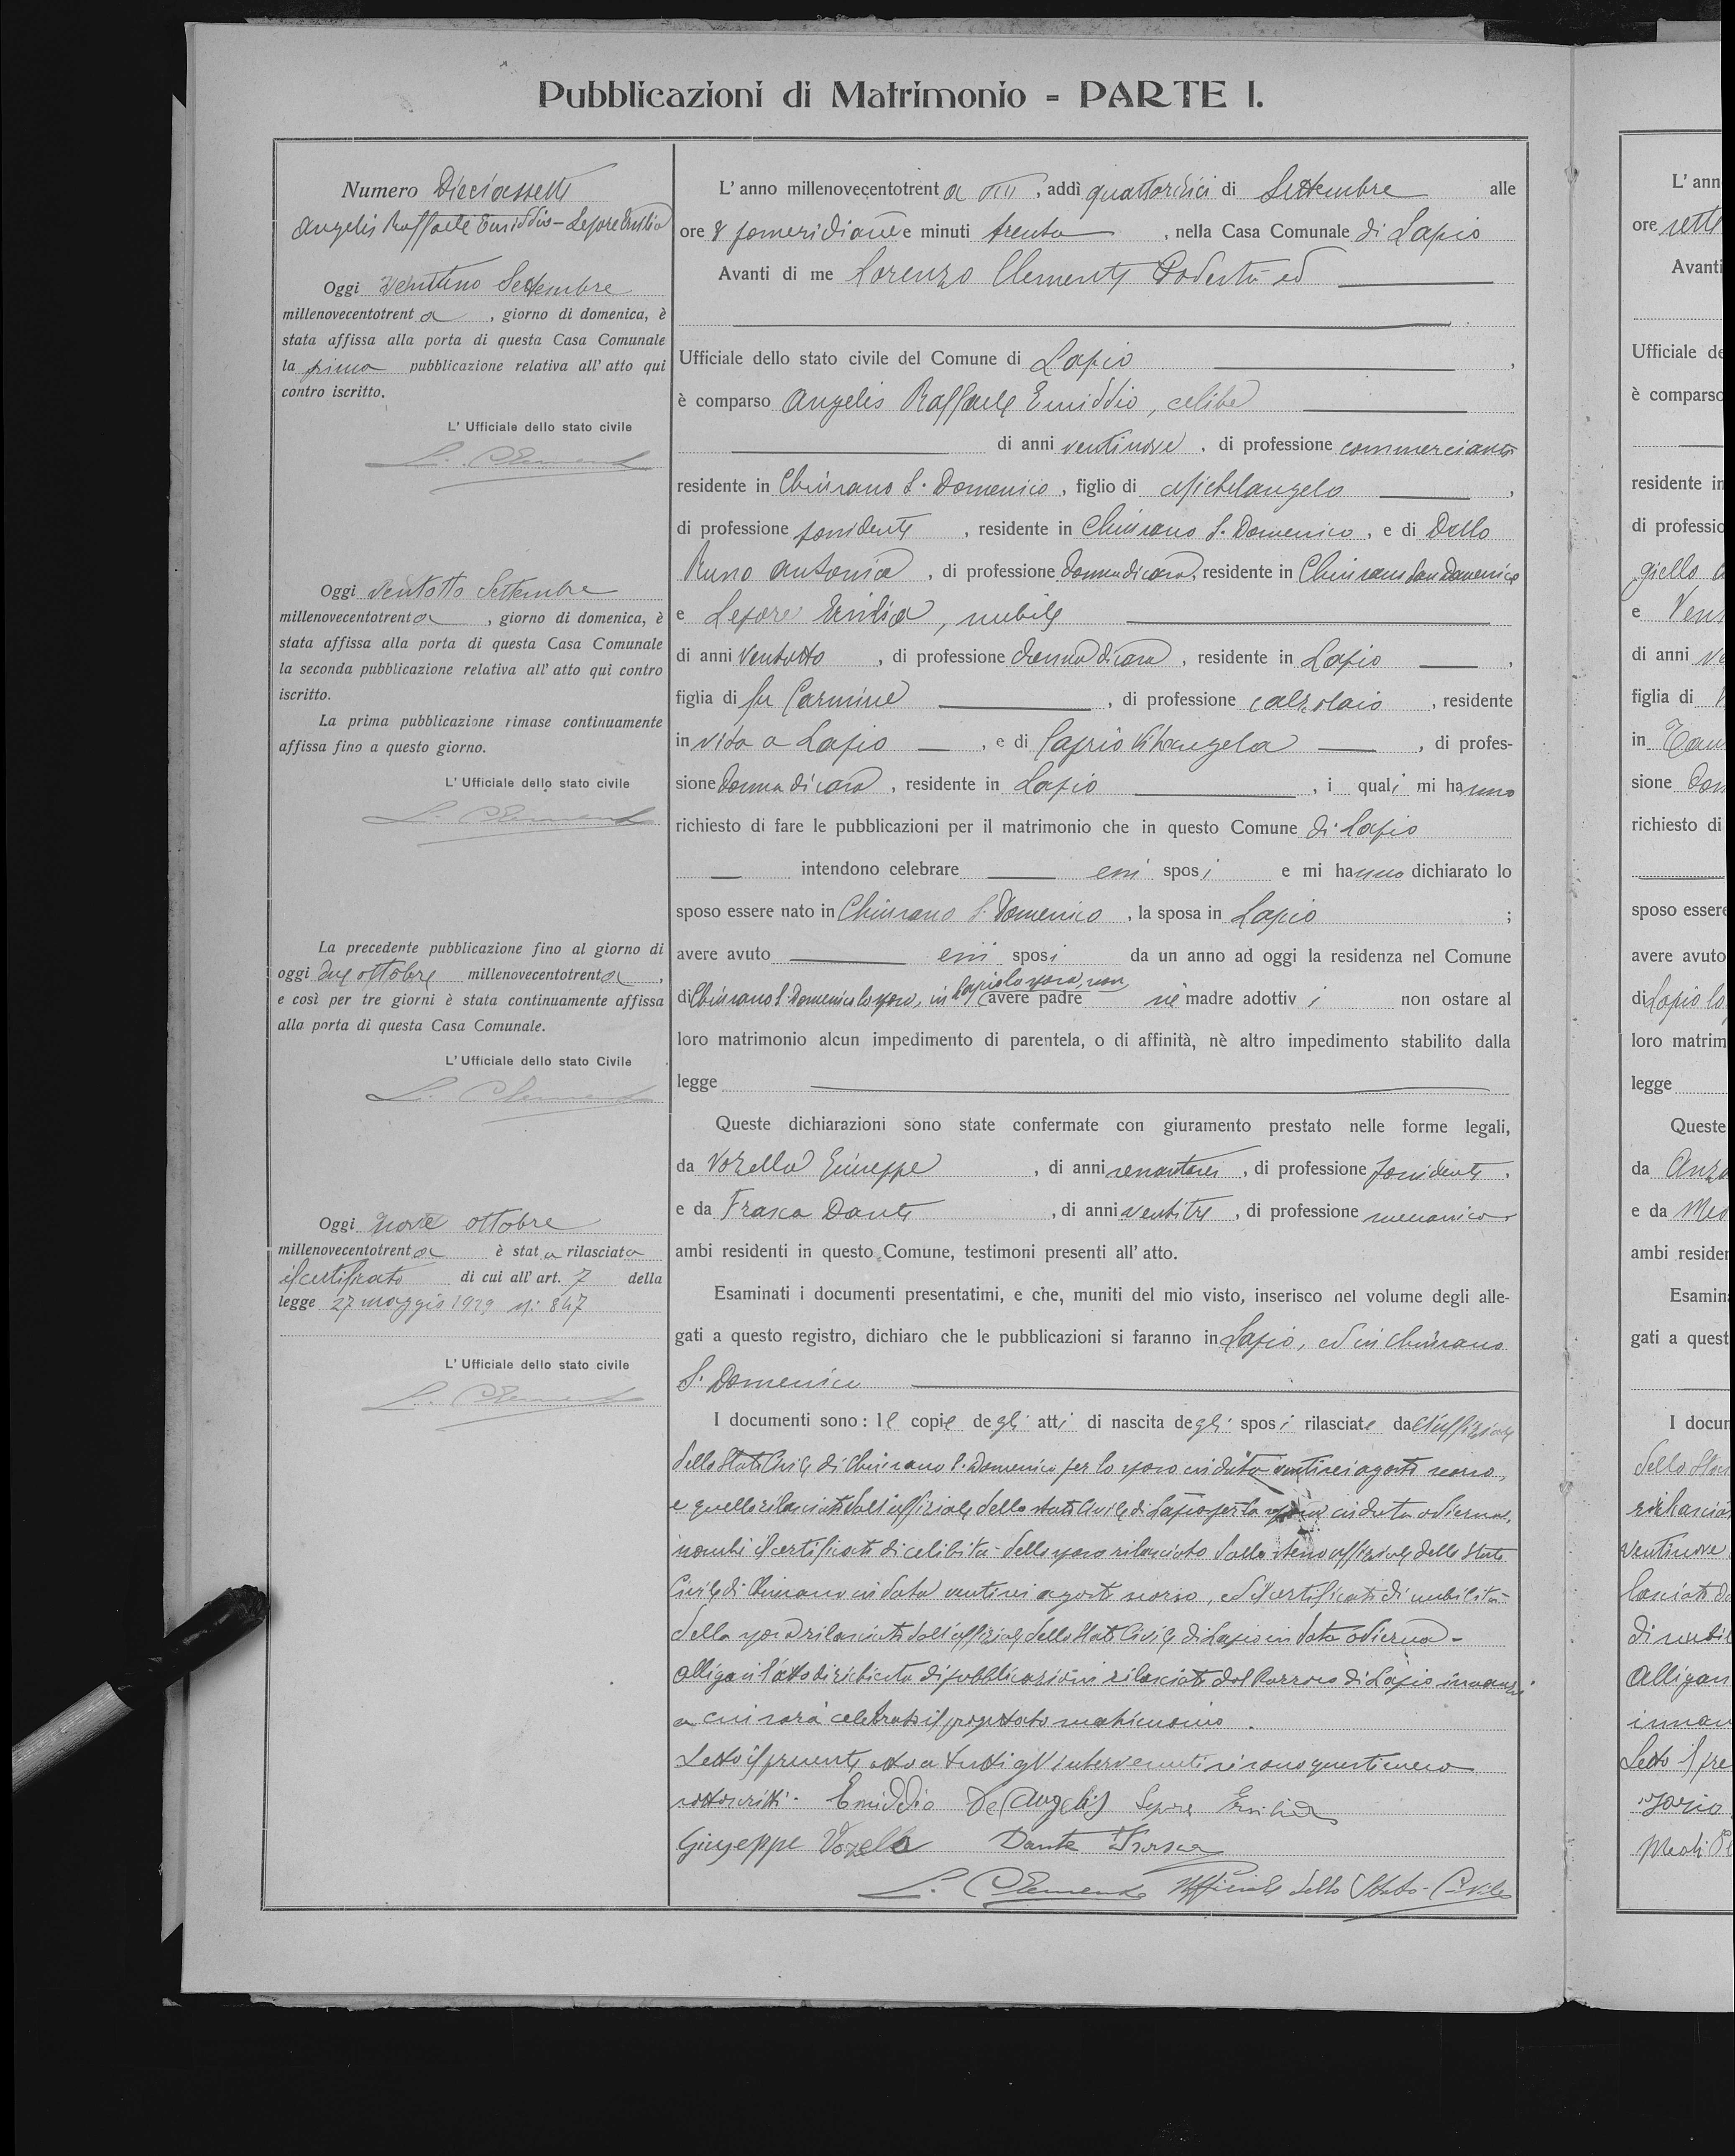 Pubblicazioni di Matrimonio = PARTE I.
Numero Diciassette
Angelis Raffaele Emiddio - Lepore Ersilia
Oggi ventuno Settembre
millenovecentotrenta, giorno di domenica, è
stata affissa alla porta di questa Casa Comunale
la prima pubblicazione relativa all'atto qui
contro iscritto.
L'Ufficiale dello stato civile
L. Clemente
Oggi ventotto Settembre
millenovecentotrenta, giorno di domenica, è
stata affissa alla porta di questa Casa Comunale
la seconda pubblicazione relativa all'atto qui contro
iscritto.
La prima pubblicazione rimase continuamente
affissa fino a questo giorno.
L'Ufficiale dello stato civile
L. Clemente
La precedente pubblicazione fino al giorno di
oggi due ottobre millenovecentotrenta,
e così per tre giorni è stata continuamente affissa
alla porta di questa Casa Comunale.
L'Ufficiale dello stato Civile
L. Clemente
Oggi nove ottobre
millenovecentotrenta è stata rilasciata
il certificato di cui all'art. 7 della
legge 27 maggio 1929 n: 847
L'Ufficiale dello stato civile
L. Clemente
L'anno millenovecentotrenta, addì quattordici di Settembre alle
ore 8 pomeridiane e minuti trenta, nella Casa Comunale di Lapio
Avanti di me Lorenzo Clemente Podestà ed
Ufficiale dello stato civile del Comune di Lapio,
è comparso Angelis Raffaele Emiddio, celibe
di anni ventinove, di professione commerciante
residente in Chiusano S. Domenico, figlio di Michelangelo,
di professione possidente, residente in Chiusano S. Domenico, e di Dello
Russo Antonia, di professione donna di casa, residente in Chiusano San Domenico
e Lepore Ersilia, nubile
di anni ventotto, di professione donna di casa, residente in Lapio,
figlia di fu Carmine, di professione calzolaio, residente
in vita a Lapio, e di Caprio Vitangela, di profes-
sione donna di casa, residente in Lapio, i quali mi hanno
richiesto di fare le pubblicazioni per il matrimonio che in questo Comune di Lapio
intendono celebrare essi sposi e mi hanno dichiarato lo
sposo essere nato in Chiusano S. Domenico, la sposa in Lapio;
avere avuto essi sposi da un anno ad oggi la residenza nel Comune
di Chiusano S. Domenico lo sposo, in Lapio la sposa, non avere padre nè madre adottivi non ostare al
loro matrimonio alcun impedimento di parentela, o di affinità, nè altro impedimento stabilito dalla
legge
Queste dichiarazioni sono state confermate con giuramento prestato nelle forme legali,
da Vozella Giuseppe, di anni, di professione possidente,
e da Frasca Dante, di anni ventitre, di professione meccanico
ambi residenti in questo Comune, testimoni presenti all'atto.
Esaminati i documenti presentatimi, e che, muniti del mio visto, inserisco nel volume degli alle-
gati a questo registro, dichiaro che le pubblicazioni si faranno in Lapio, ed in Chiusano
S. Domenico
I documenti sono: le copie degli atti di nascita degli sposi rilasciate dall'uffiziale
dello Stato Civile di Chiusano S. Domenico per lo sposo in data ventisei agosto scorso,
e quello rilasciato dall'uffiziale dello stato Civile di Lapio per la sposa in data odierna,
nonchè il certificato di celibità dello sposo rilasciato dallo stesso uffiziale dello Stato
Civile di Chiusano in data ventisei agosto scorso, ed il certificato di nubilità
della sposa rilasciato dall'uffiziale dello Stato Civile di Lapio in data odierna -
Alligasi l'atto di richiesta di pubblicazioni rilasciato dal Parroco di Lapio innanzi
a cui sarà celebrato il progettato matrimonio.
Letto il presente atto a tutti gl'intervenuti si sono questi meco
sottoscritti. Emiddio De Angelis Lepore Ersilia
Giuseppe Vozella Dante Frasca
L. Clemente Ufficiale dello Stato Civile
L'ann
ore sette
Avanti
Ufficiale de
è comparso
residente in
di professio
giello
e Ven
di anni
figlia di
in
sione don
richiesto di
sposo essere
avere avuto
di Lapio lo
loro matrim
legge
Queste
da
e da
ambi residen
Esamina
gati a quest
I docum
dello Stat
rilascia
ventinove
lasciato d
di nubil
Alligan
innan
Letto il pre